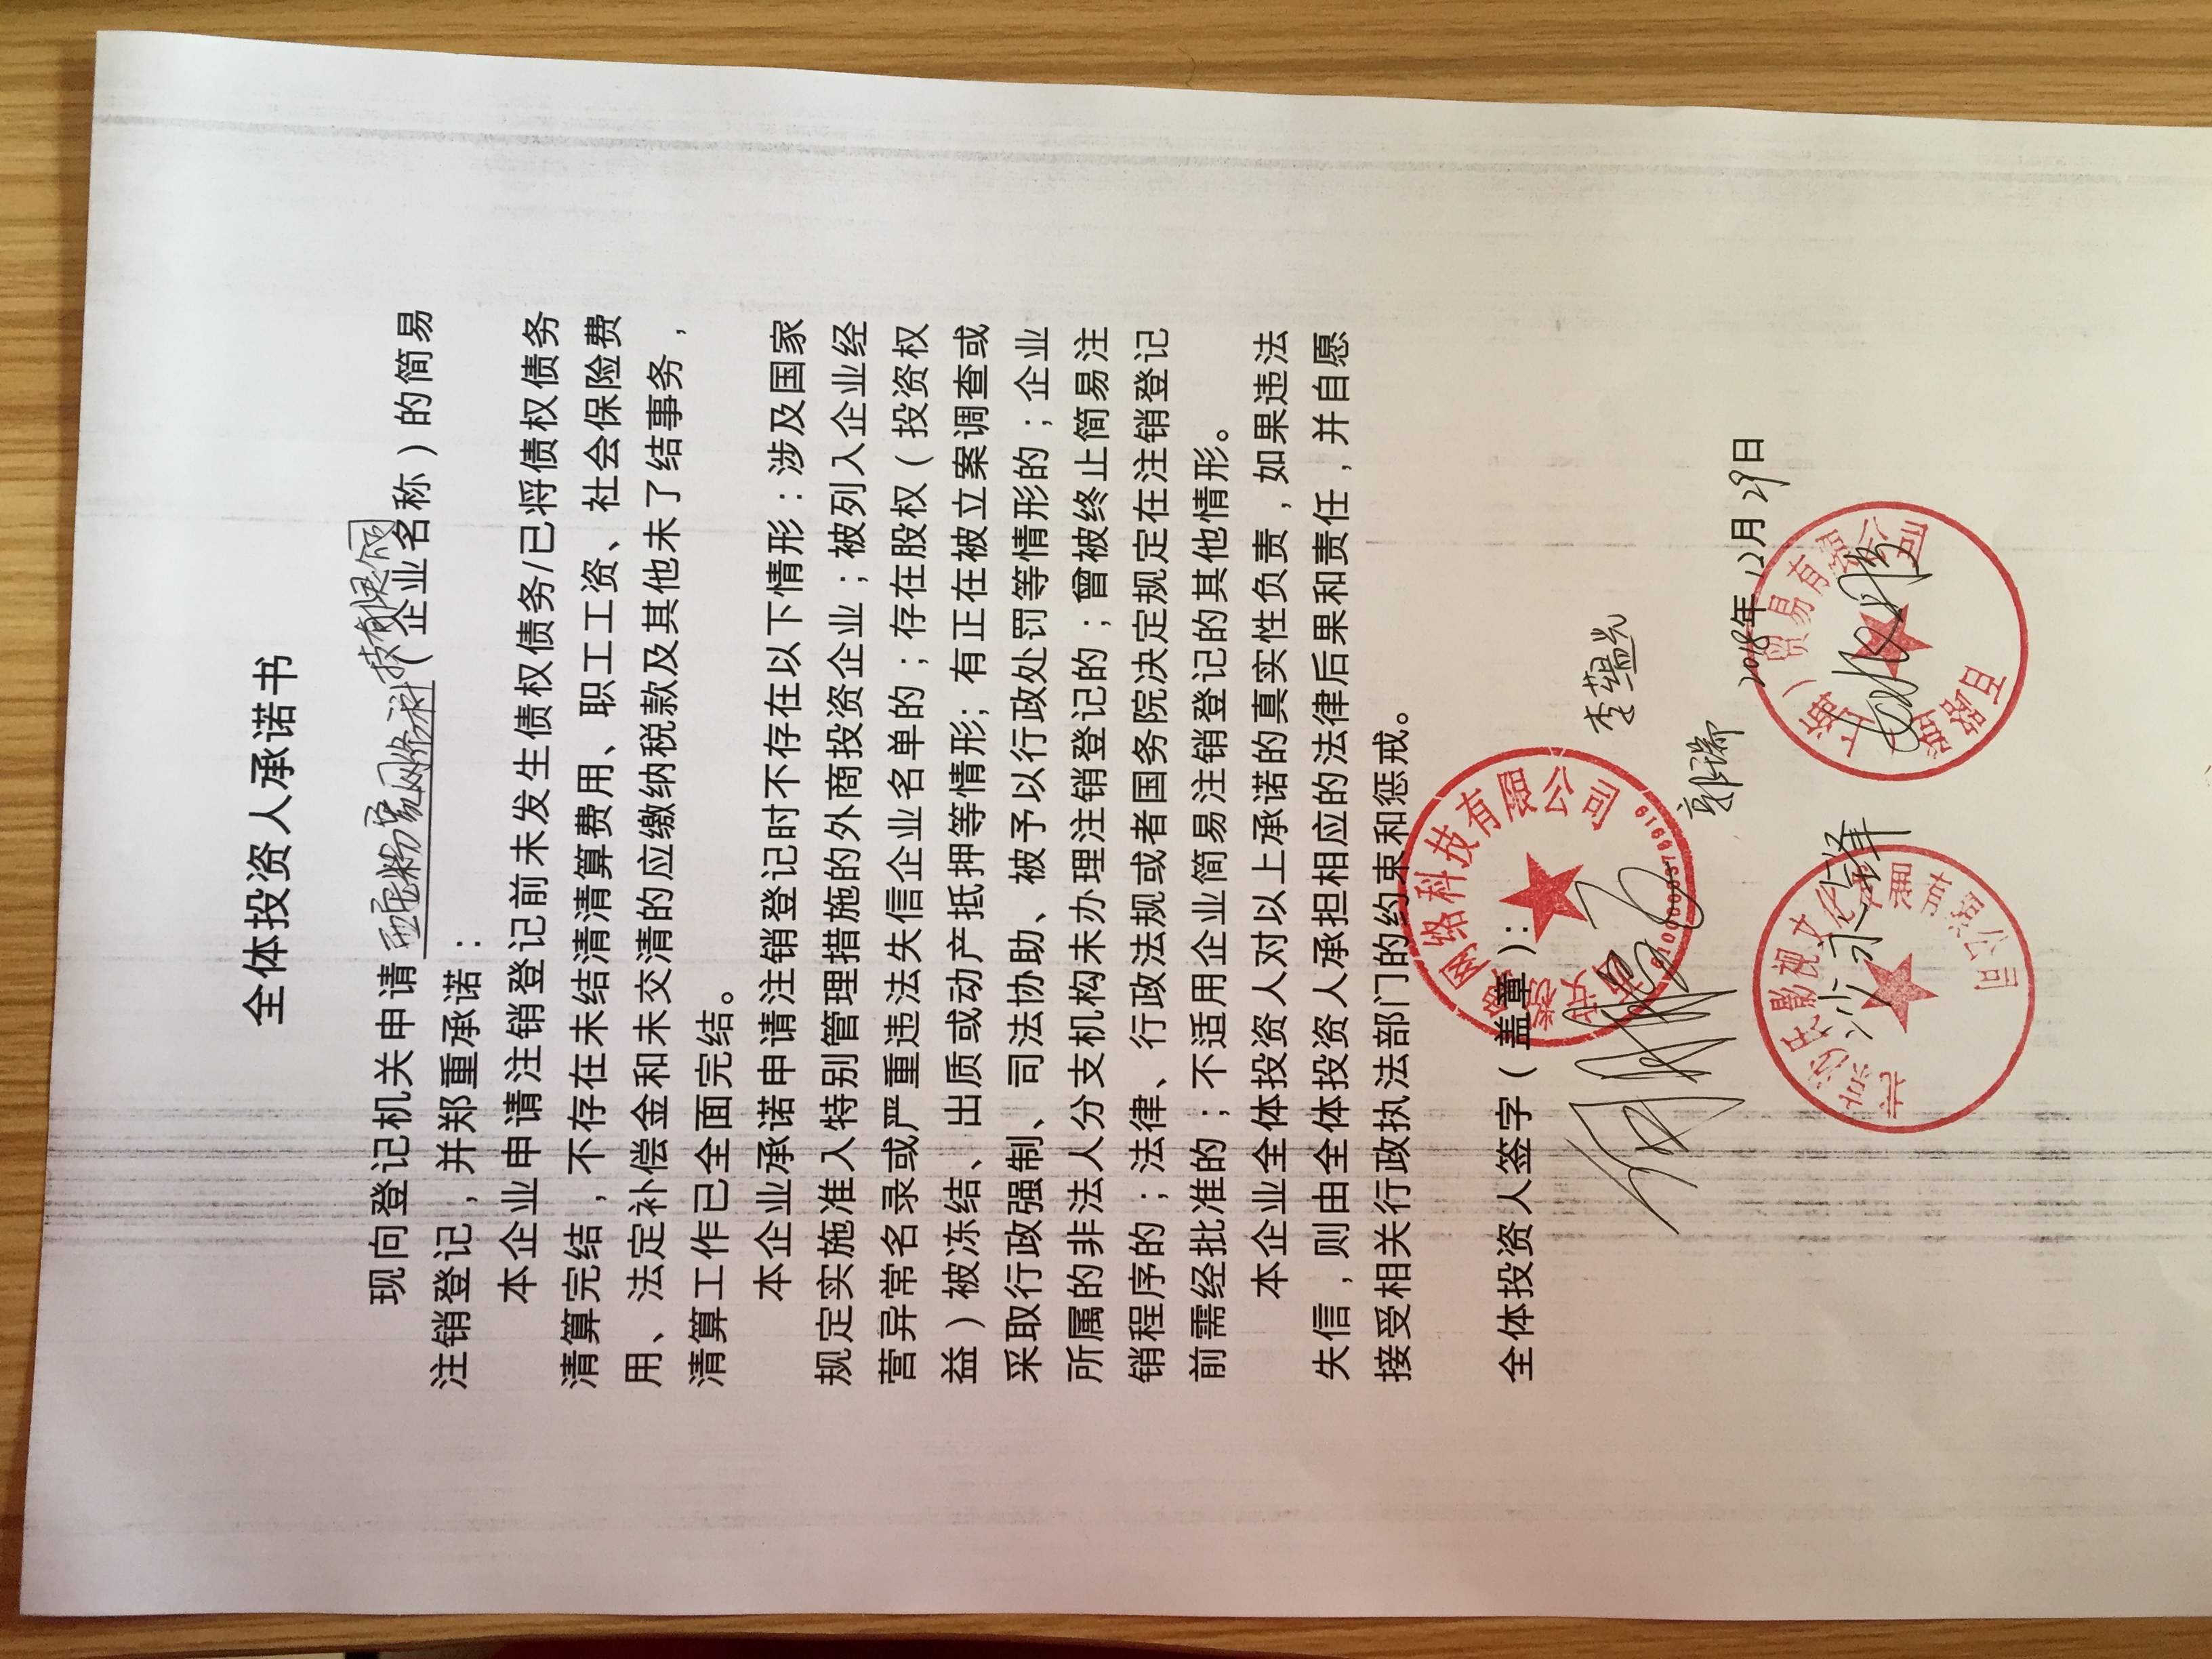 全体投资人承诺书
现向登记机关申请西安粉象网络科技有限公司（企业名称）的简易
注销登记，并郑重承诺：
本企业申请注销登记前未发生债权债务/已将债权债务
清算完结，不存在未结清清算费用、职工工资、社会保险费
用、法定补偿金和未交清的应缴纳税款及其他未了结事务，
清算工作已全面完结。
本企业承诺申请注销登记时不存在以下情形：涉及国家
规定实施准入特别管理措施的外商投资企业；被列入企业经
营异常名录或严重违法失信企业名单的；存在股权（投资权
益）被冻结、出质或动产抵押等情形；有正在被立案调查或
采取行政强制、司法协助、被予以行政处罚等情形的；企业
所属的非法人分支机构未办理注销登记的；曾被终止简易注
销程序的；法律、行政法规或者国务院决定规定在注销登记
前需经批准的；不适用企业简易注销登记的其他情形。
本企业全体投资人对以上承诺的真实性负责，如果违法
失信，则由全体投资人承担相应的法律后果和责任，并自愿
接受相关行政执法部门的约束和惩戒。
西安粉象网络科技有限公司
全体投资人签字（盖章）：
李蕴光
6100000376919
郭瑞
2018年12月29日
北京沙氏影视文化发展有限公司
沙永锋
（上海）贸易有限公司